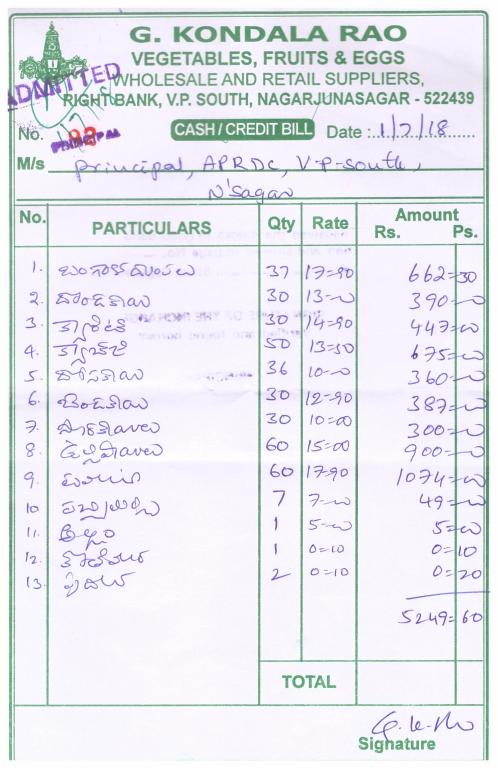 G. KONDALA RAO
VEGETABLES, FRUITS & EGGS
WHOLESALE AND RETAIL SUPPLIERS,
RIGHT BANK, V.P. SOUTH, NAGARJUNASAGAR - 522439
ADMITTED
PRINCIPAL
No. CASH / CREDIT BILL Date : 1/7/18
M/s Principal, APRDC, V.P-South,
N'Sagar
No. PARTICULARS Qty Rate Amount
Rs. Ps.
1. బంగాళదుంపలు 37 17=90 662=30
2. దొండకాయ 30 13=00 390=00
3. క్యారెట్ 30 14=90 447=00
4. క్యాబేజి 50 13=50 675=00
5. దోసకాయ 36 10=00 360=00
6. బెండకాయ 30 12=90 387=00
7. 30 10=00 300=00
8. 60 15=00 900=00
9. టమాటా 60 17=90 1074=00
10 పచ్చిమిర్చి 7 7=00 49=00
11. అల్లం 1 5=00 5=00
12. కొతిమీర 1 0=10 0=10
13. పుదీన 2 0=10 0=20
5249=60
TOTAL
Signature